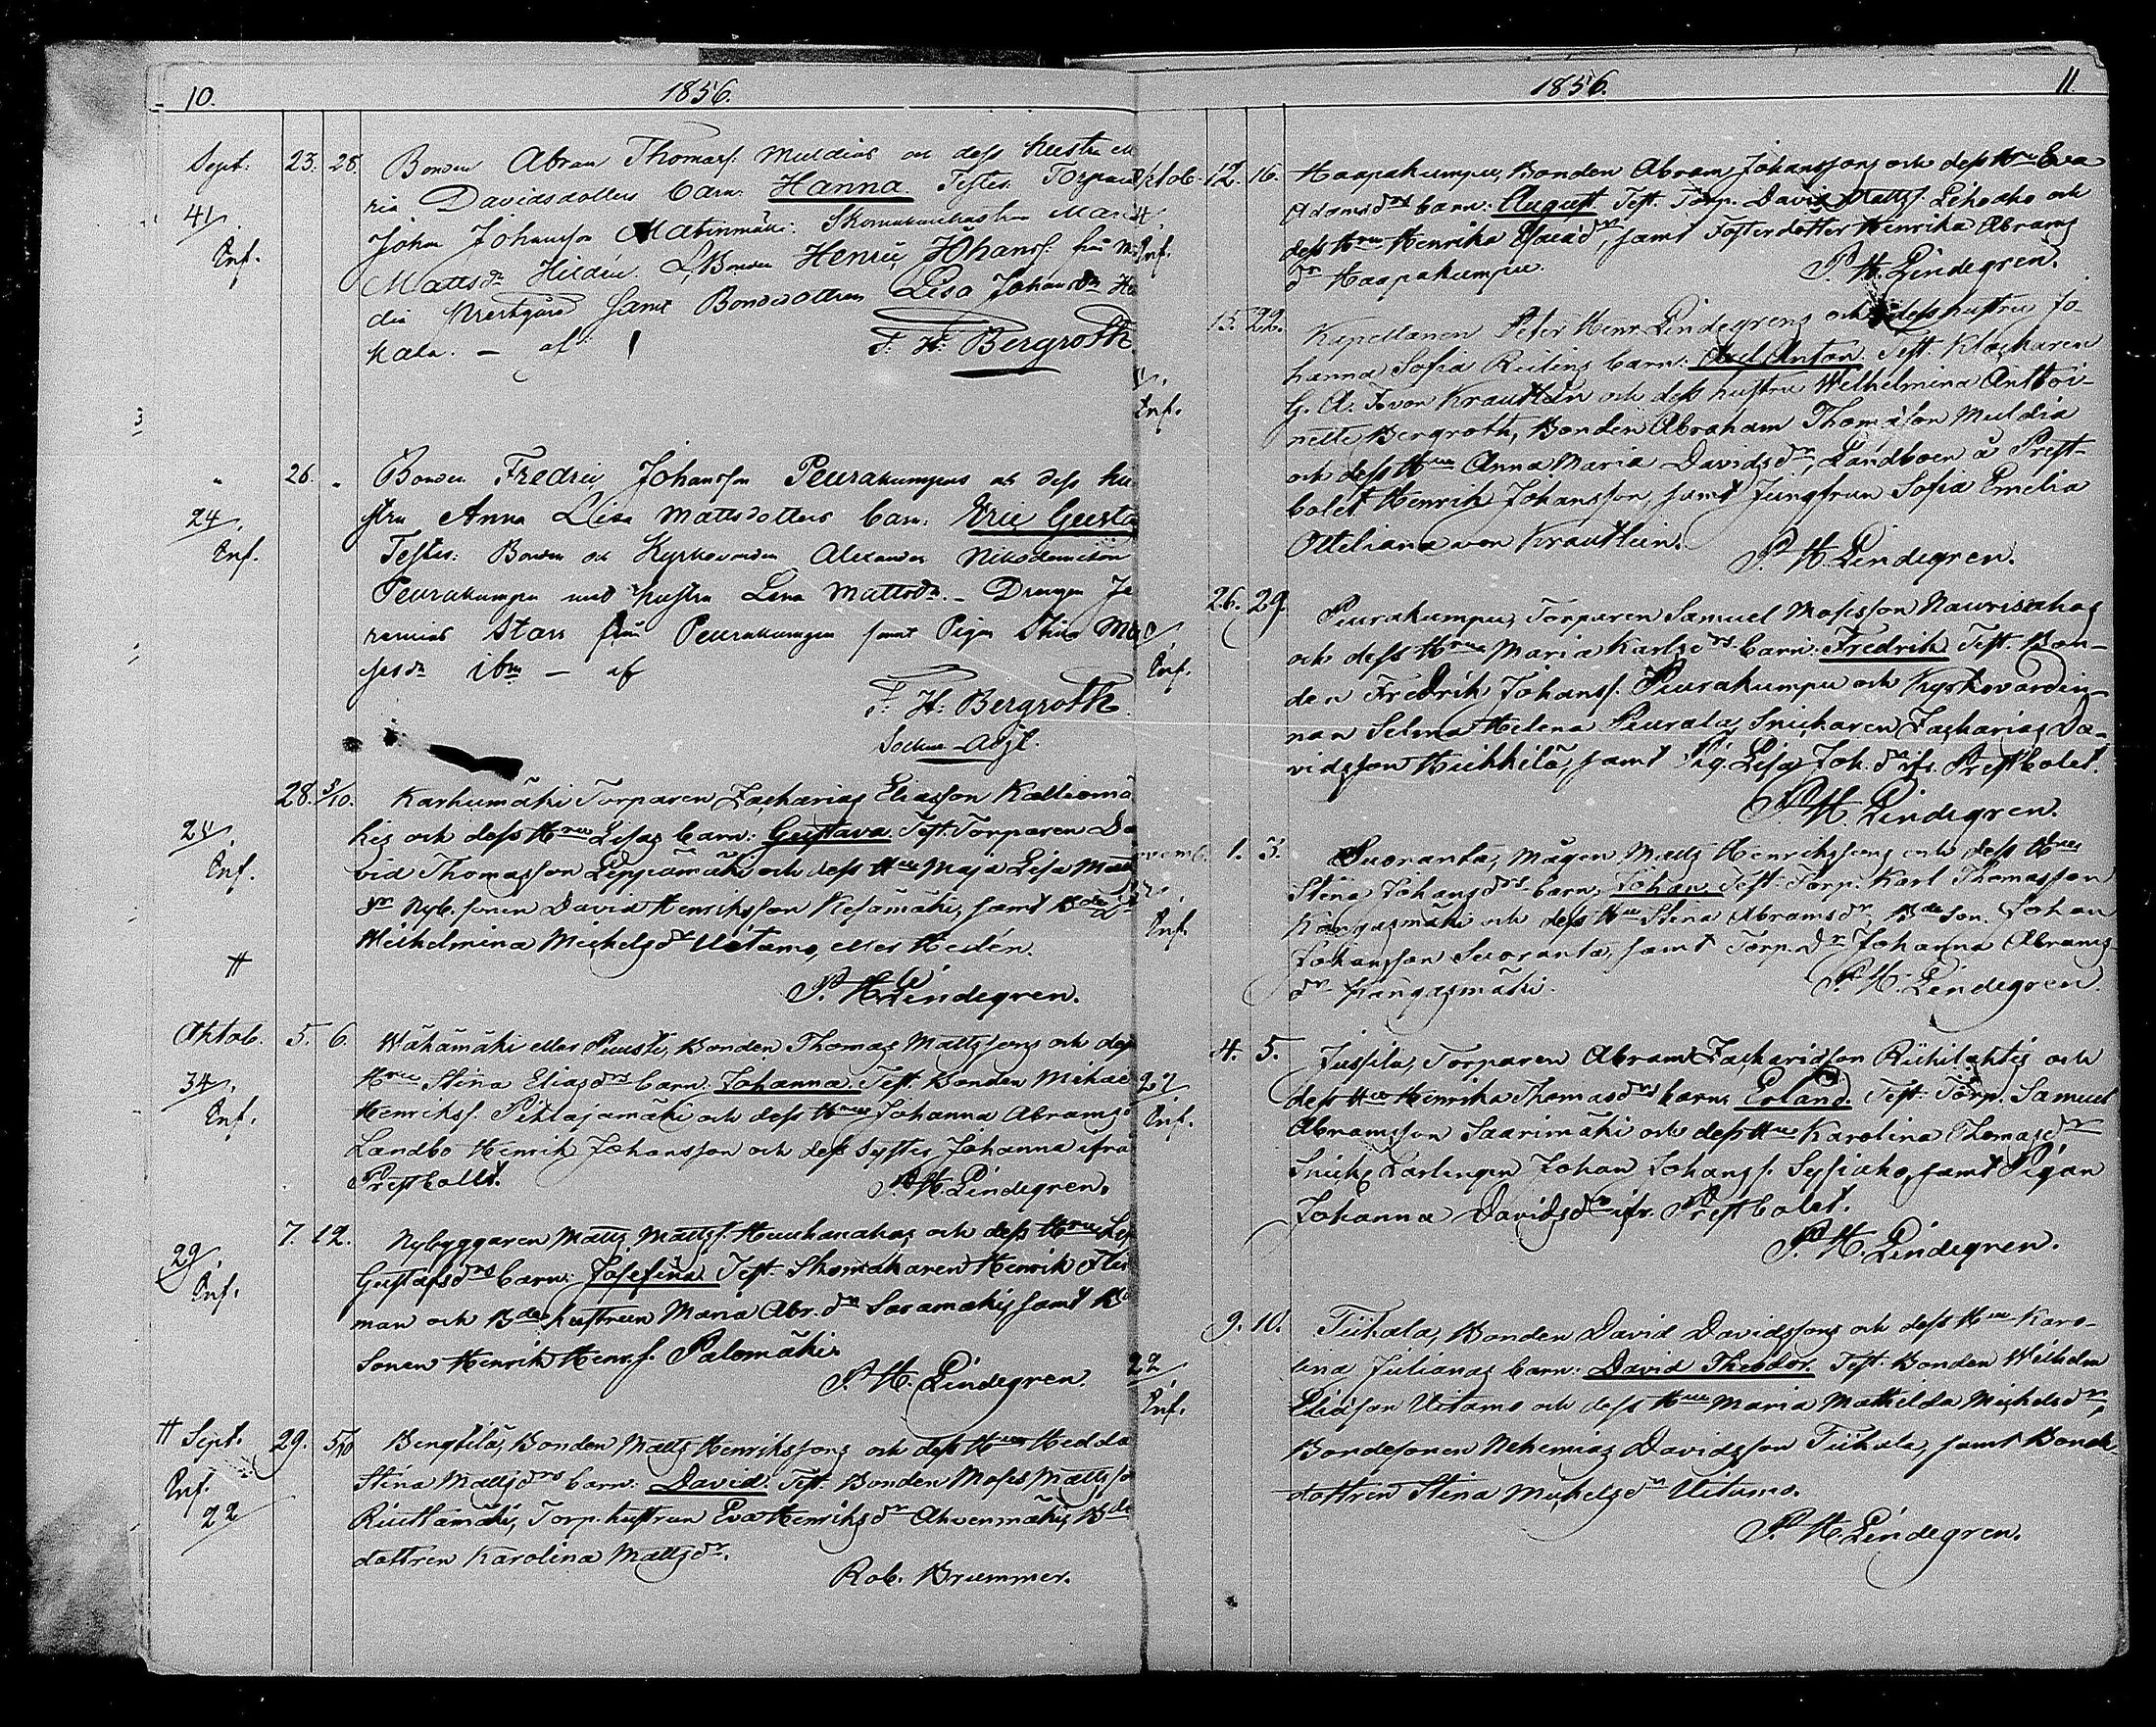 10. 1856.
Sept. 23. 28. Bonden Abram Thomass. Muldias och dess hustru Ma
ria Davidsdotters barn: Hanna. Testes: Torparen
41. Johan Johansson Matinmäki. Skomakarehustrun Maria
Inf. Mattsdr Hilden. Bonden Henric Johanss. från
dia Prestgård samt Bondedottren Lisa Johansdr
kala. – af F. H. Bergroth
" 26. " Bonden Fredric Johansson Peurakumpus och dess hu
stru Anna Lisa Mattsdotters barn: Eric Gusta
24. Testes: Bonden och Kyrkovärden Alexander Nikodemusson
Inf. Peurakumpu med hustru Lena Mattsdr. – Drengen Je
remias Starr från Peurakumpu samt Pigan Stina Mo
sesdr ibm – af
F. H. Bergroth
Sockne-Adjt.
28. 3/10. Karhumäki Torparen Zacharias Eliasson Kalliomä
kis och dess Hru Lisas barn: Gustava. Test. Torparen Da
25. vid Thomasson Leppämäki och dess Hru Maja Lisa Matts
Inf. dr Nyb. sonen David Henriksson Kesämäki, samt Bde
Wilhelmina Michelsdr Uitamo, eller Hedén.
#
P. H. Lindegren.
Oktob. 5. 6. Wähämäki eller Puusti, Bonden Thomas Mattssons och dess
34. Hru Stina Eliasdrs barn: Johanna. Test. Bonden Mikae
Inf. Henrikss. Pihlajamäki och dess Hru Johanna Abramsd
Landbo Henrik Johansson och dess syster Johanna ifrån
Prestbolet. P. H. Lindegren.
7. 12. Nybyggaren Matts Mattss. Huuhanahos och dess Hru
29. Gustafsdrs barn: Josefina. Test. Skomakaren Henrik
Inf. man och Bdehustrun Maria Abr.dr Saramäki, samt Bde
sonen Henrik Henrs. Palomäki.
P. H. Lindegren.
# Sept. 29. 5/10 Bengtilä, Bonden Matts Henrikssons och dess Hrus Hedda
Inf. Stina Mattsdrs barn: David. Test. Bonden Moses Mattsso
22 Riuttamäki, Torp.hustrun Eva Henriksdr Ahvenmäki, Bde
dottren Karolina Mattsdr.
Rob. Brummer.
1856. 11.
Oktob. 12. 16. Haapakumpu, Bonden Abram Johanssons och dess Hru Eva
Adamsdrs barn: August. Test. Torp. David Mattss. Lehoaho och
dess Hru Henrika Esaiadr, samt Fosterdotter Henrika Abrams
Inf. dr Haapakumpu. P. H. Lindegren.
15. 22. Kapellanen Peter Henr. Lindegrens och dess hustru Jo-
hanna Sofia Reilins barn: Axel Anton. Test. Klockaren
G. A. F. von Krautlein och dess hustru Wilhelmina Anttoi-
Inf. nette Bergroth, Bonden Abraham Thomasson Muldia
och dess Hru Anna Maria Davidsdr, Landboen å Prest-
bolet Henrik Johansson, samt Jungfrun Sofia Emelia
Otteliana von Krautlein.
P. H. Lindegren.
26. 29. Peurakumpu, Torparen Samuel Mosesson Naurisahos
och dess Hrus Maria Karlsdrs barn: Fredrik. Test. Bon-
Inf. den Fredrik Johanss. Peurakumpu och Kyrkovärdin-
nan Selma Helena Peurala, Snickaren Zacharias Da-
vidsson Heikkilä, samt Pig. Lisa Joh.dr ifr. Prestbolet.
P. H. Lindegren.
Novemb. 1. 3. Suoranta, Mågen Matts Henrikssons och dess Hrus
Stina Johansdrs barn: Johan. Test. Torp. Karl Thomasson
Inf. Kangasmäki och dess Hru Stina Abramsdr, Bdeson. Johan
Johansson Suoranta, samt Torp.dr Johanna Abrams
dr Kangasmäki. P. H. Lindegren.
4. 5. Jussila, Torparen Abram Zachariasson Riihilahtis och
27. dess Hru Henrika Thomasdrs barn: Erland. Test. Torp. Samuel
Inf. Abramsson Saarimäki och dess Hru Karolina Thomasdr,
Snick. Lärlingen Johan Johanss. Sysiaho, samt Pigan
Johanna Davidsdr ifr. Prestbolet.
P. H. Lindegren.
9. 10. Tiihala, Bonden David Davidssons och dess Hru Karo-
22 lina Julianas barn: David Theodor. Test. Bonden Wilhelm
Inf. Eliasson Uitamo och dess Hru Maria Mathilda Michelsdr,
Bondesonen Nehemias Davidsson Tiihala, samt Bonde-
dottren Stina Michelsdr Uitamo.
P. H. Lindegren.